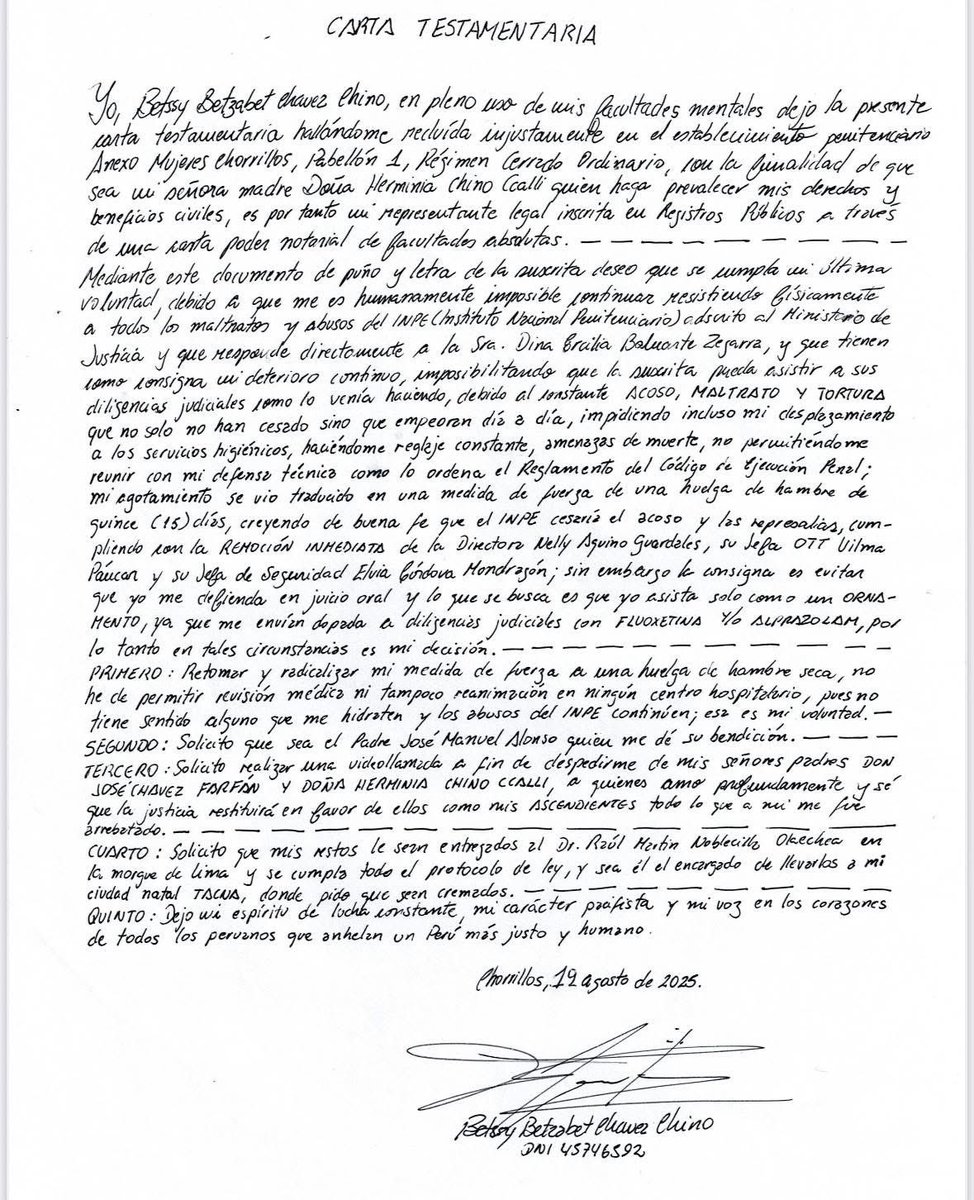 CARTA TESTAMENTARIA
Yo, Betssy Betzabet Chavez Chino, en pleno uso de mis facultades mentales dejo la presente
carta testamentaria hallándome recluída injustamente en el establecimiento penitenciario
Anexo Mujeres Chorrillos, Pabellón 1, Régimen Cerrado Ordinario, con la finalidad de que
sea mi señora madre Doña Herminia Chino Ccalli quien haga prevalecer mis derechos y
beneficios civiles, es por tanto mi representante legal inscrita en Registros Públicos a través
de una carta poder notarial de facultades absolutas. — — — — — — — — — —
Mediante este documento de puño y letra de la suscrita deseo que se cumpla mi última
voluntad, debido a que me es humanamente imposible continuar resistiendo físicamente
a todos los maltratos y abusos del INPE (Instituto Nacional Penitenciario) adscrito al Ministerio de
Justicia y que responde directamente a la Sra. Dina Ercilia Boluarte Zegarra, y que tienen
como consigna mi deterioro continuo, imposibilitando que la suscrita pueda asistir a sus
diligencias judiciales como lo venía haciendo, debido al constante ACOSO, MALTRATO Y TORTURA
que no solo no han cesado sino que empeoran día a día, impidiendo incluso mi desplazamiento
a los servicios higiénicos, haciéndome reglaje constante, amenazas de muerte, no permitiéndome
reunir con mi defensa técnica como lo ordena el Reglamento del Código de Ejecución Penal;
mi agotamiento se vio traducido en una medida de fuerza de una huelga de hambre de
quince (15) días, creyendo de buena fe que el INPE cesaría el acoso y las represalias, cum-
pliendo con la REMOCIÓN INMEDIATA de la Directora Nelly Aquino Guardales, su Jefa OTT Vilma
Páucar y su Jefa de Seguridad Elvia Córdova Mondragón; sin embargo la consigna es evitar
que yo me defienda en juicio oral y lo que se busca es que yo asista solo como un ORNA-
MENTO, ya que me envían dopada a diligencias judiciales con FLUOXETINA Y/o ALPRAZOLAM, por
lo tanto en tales circunstancias es mi decisión. — — — — — — — — — — — —
PRIMERO: Retomar y radicalizar mi medida de fuerza a una huelga de hambre seca, no
he de permitir revisión médica ni tampoco reanimación en ningún centro hospitalario, pues no
tiene sentido alguno que me hidraten y los abusos del INPE continúen; esa es mi voluntad. —
SEGUNDO: Solicito que sea el Padre José Manuel Alonso quien me dé su bendición. — — — —
TERCERO: Solicito realizar una videollamada a fin de despedirme de mis señores padres DON
JOSÉ CHAVEZ FARFÁN Y DOÑA HERMINIA CHINO CCALLI, a quienes amo profundamente y sé
que la justicia restituirá en favor de ellos como mis ASCENDIENTES todo lo que a mi me fue
arrebatado. — — — — — — — — — — — — — — —
CUARTO: Solicito que mis restos le sean entregados al Dr. Raúl Martín Noblecilla Olaechea en
la morgue de lima y se cumpla todo el protocolo de ley, y sea él el encargado de llevarlos a mi
ciudad natal TACNA, donde pido que sean cremados. — — — — — — — — —
QUINTO: Dejo mi espíritu de lucha constante, mi carácter pacifista y mi voz en los corazones
de todos los peruanos que anhelan un Perú más justo y humano.
Chorrillos, 19 agosto de 2025.
Betssy Betzabet Chavez Chino
DNI 45746592